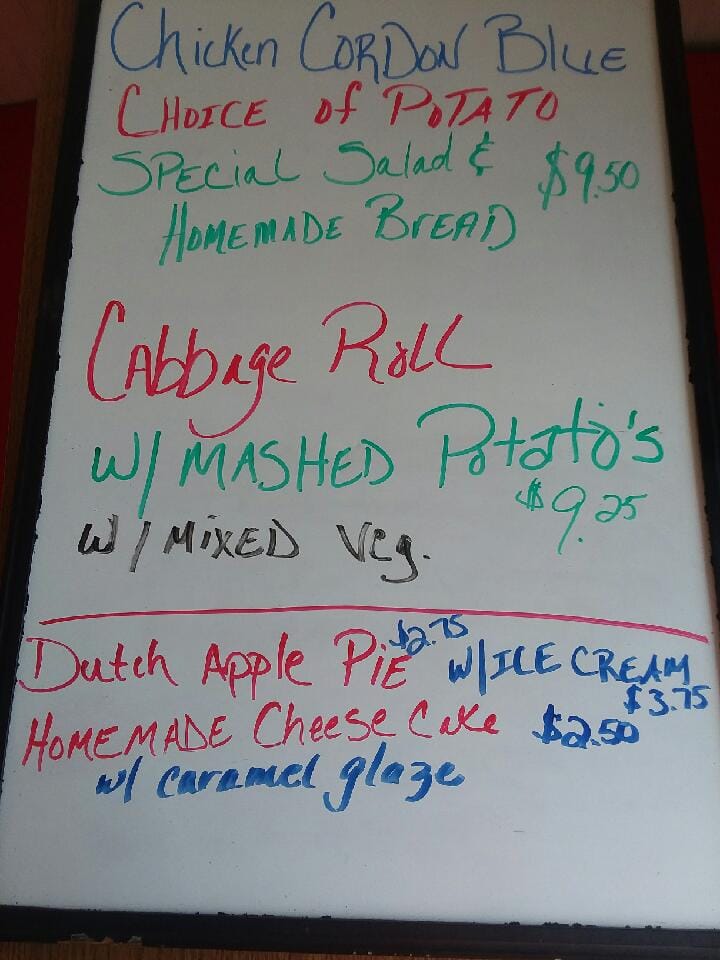 Chicken CORDON BLUE
CHOICE of POTATO
SPECiaL Salad & $9.50
HOMEMADE BREAD
CAbbage Roll
W/ MASHED Potato's
$9.25
W/ MiXED Veg.
Dutch Apple PiE $2.75 W/ ICE CREAM
$3.75
HOMEMADE Cheese Cake $2.50
w/ caramel glaze